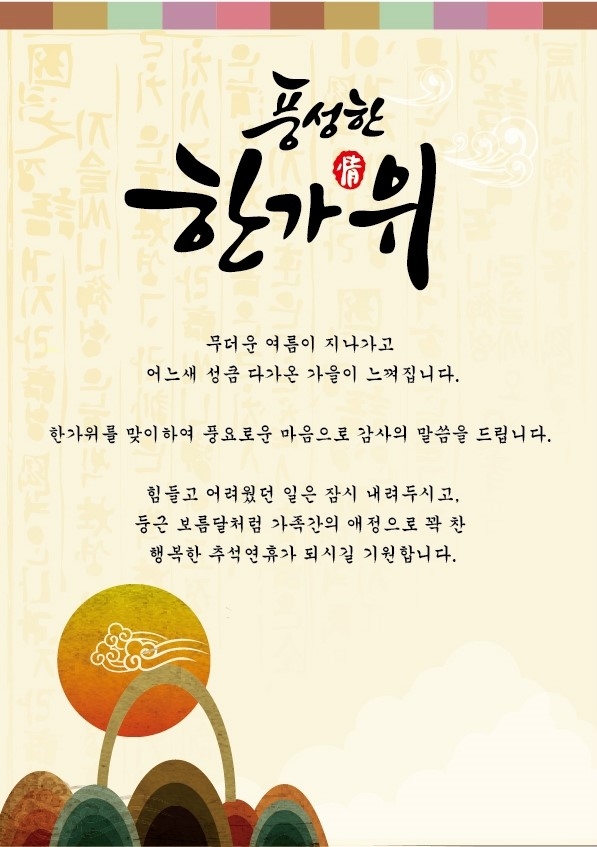 풍성한
한가위
情
무더운 여름이 지나가고
어느새 성큼 다가온 가을이 느껴집니다.
한가위를 맞이하여 풍요로운 마음으로 감사의 말씀을 드립니다.
힘들고 어려웠던 일은 잠시 내려두시고,
둥근 보름달처럼 가족간의 애정으로 꽉 찬
행복한 추석연휴가 되시길 기원합니다.